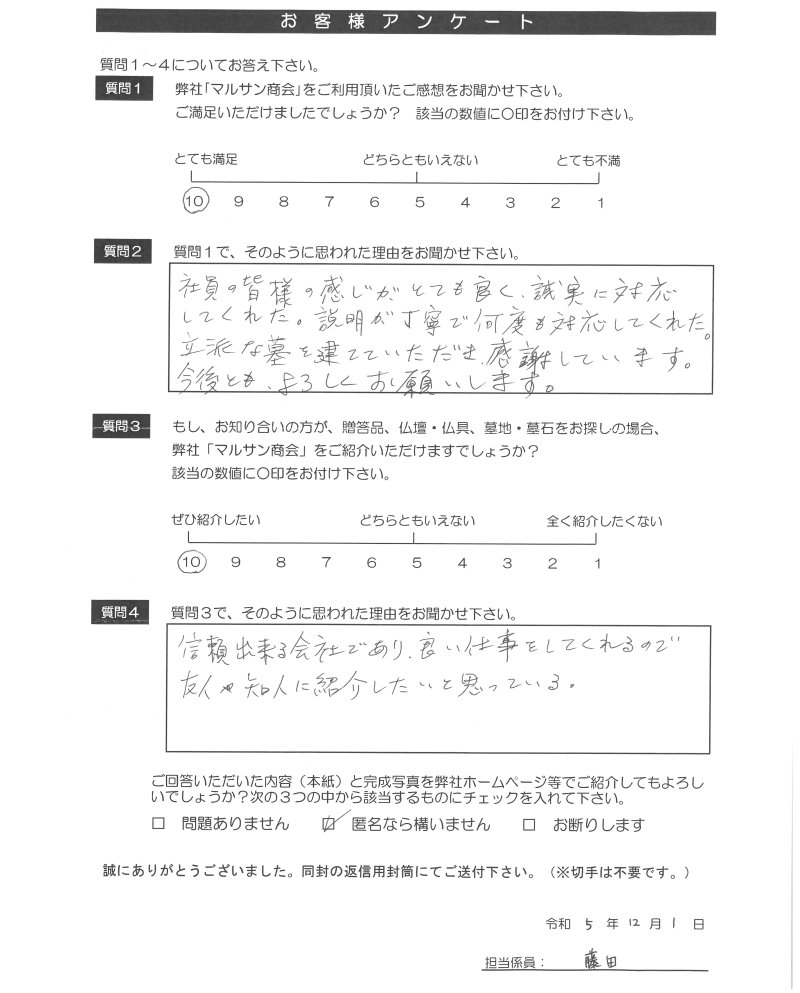 お客様アンケート
質問1～4についてお答え下さい。
質問1 弊社「マルサン商会」をご利用頂いたご感想をお聞かせ下さい。
ご満足いただけましたでしょうか？ 該当の数値に〇印をお付け下さい。
とても満足 どちらともいえない とても不満
10 9 8 7 6 5 4 3 2 1
質問2 質問1で、そのように思われた理由をお聞かせ下さい。
社員の皆様の感じがとても良く、誠実に対応
してくれた。説明が丁寧で何度も対応してくれた。
立派な墓を建てていただき、感謝しています。
今後とも、よろしくお願いします。
質問3 もし、お知り合いの方が、贈答品、仏壇・仏具、墓地・墓石をお探しの場合、
弊社「マルサン商会」をご紹介いただけますでしょうか？
該当の数値に〇印をお付け下さい。
ぜひ紹介したい どちらともいえない 全く紹介したくない
10 9 8 7 6 5 4 3 2 1
質問4 質問3で、そのように思われた理由をお聞かせ下さい。
信頼出来る会社であり、良い仕事をしてくれるので
友人や知人に紹介したいと思っている。
ご回答いただいた内容（本紙）と完成写真を弊社ホームページ等でご紹介してもよろし
いでしょうか？次の3つの中から該当するものにチェックを入れて下さい。
□ 問題ありません ☑ 匿名なら構いません □ お断りします
誠にありがとうございました。同封の返信用封筒にてご送付下さい。（※切手は不要です。）
令和 5 年 12 月 1 日
担当係員： 藤田